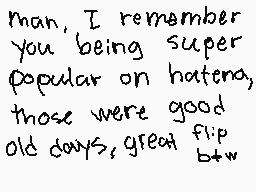 man, I remember
you being super
popular on hatena,
those were good
old days, great flip
btw